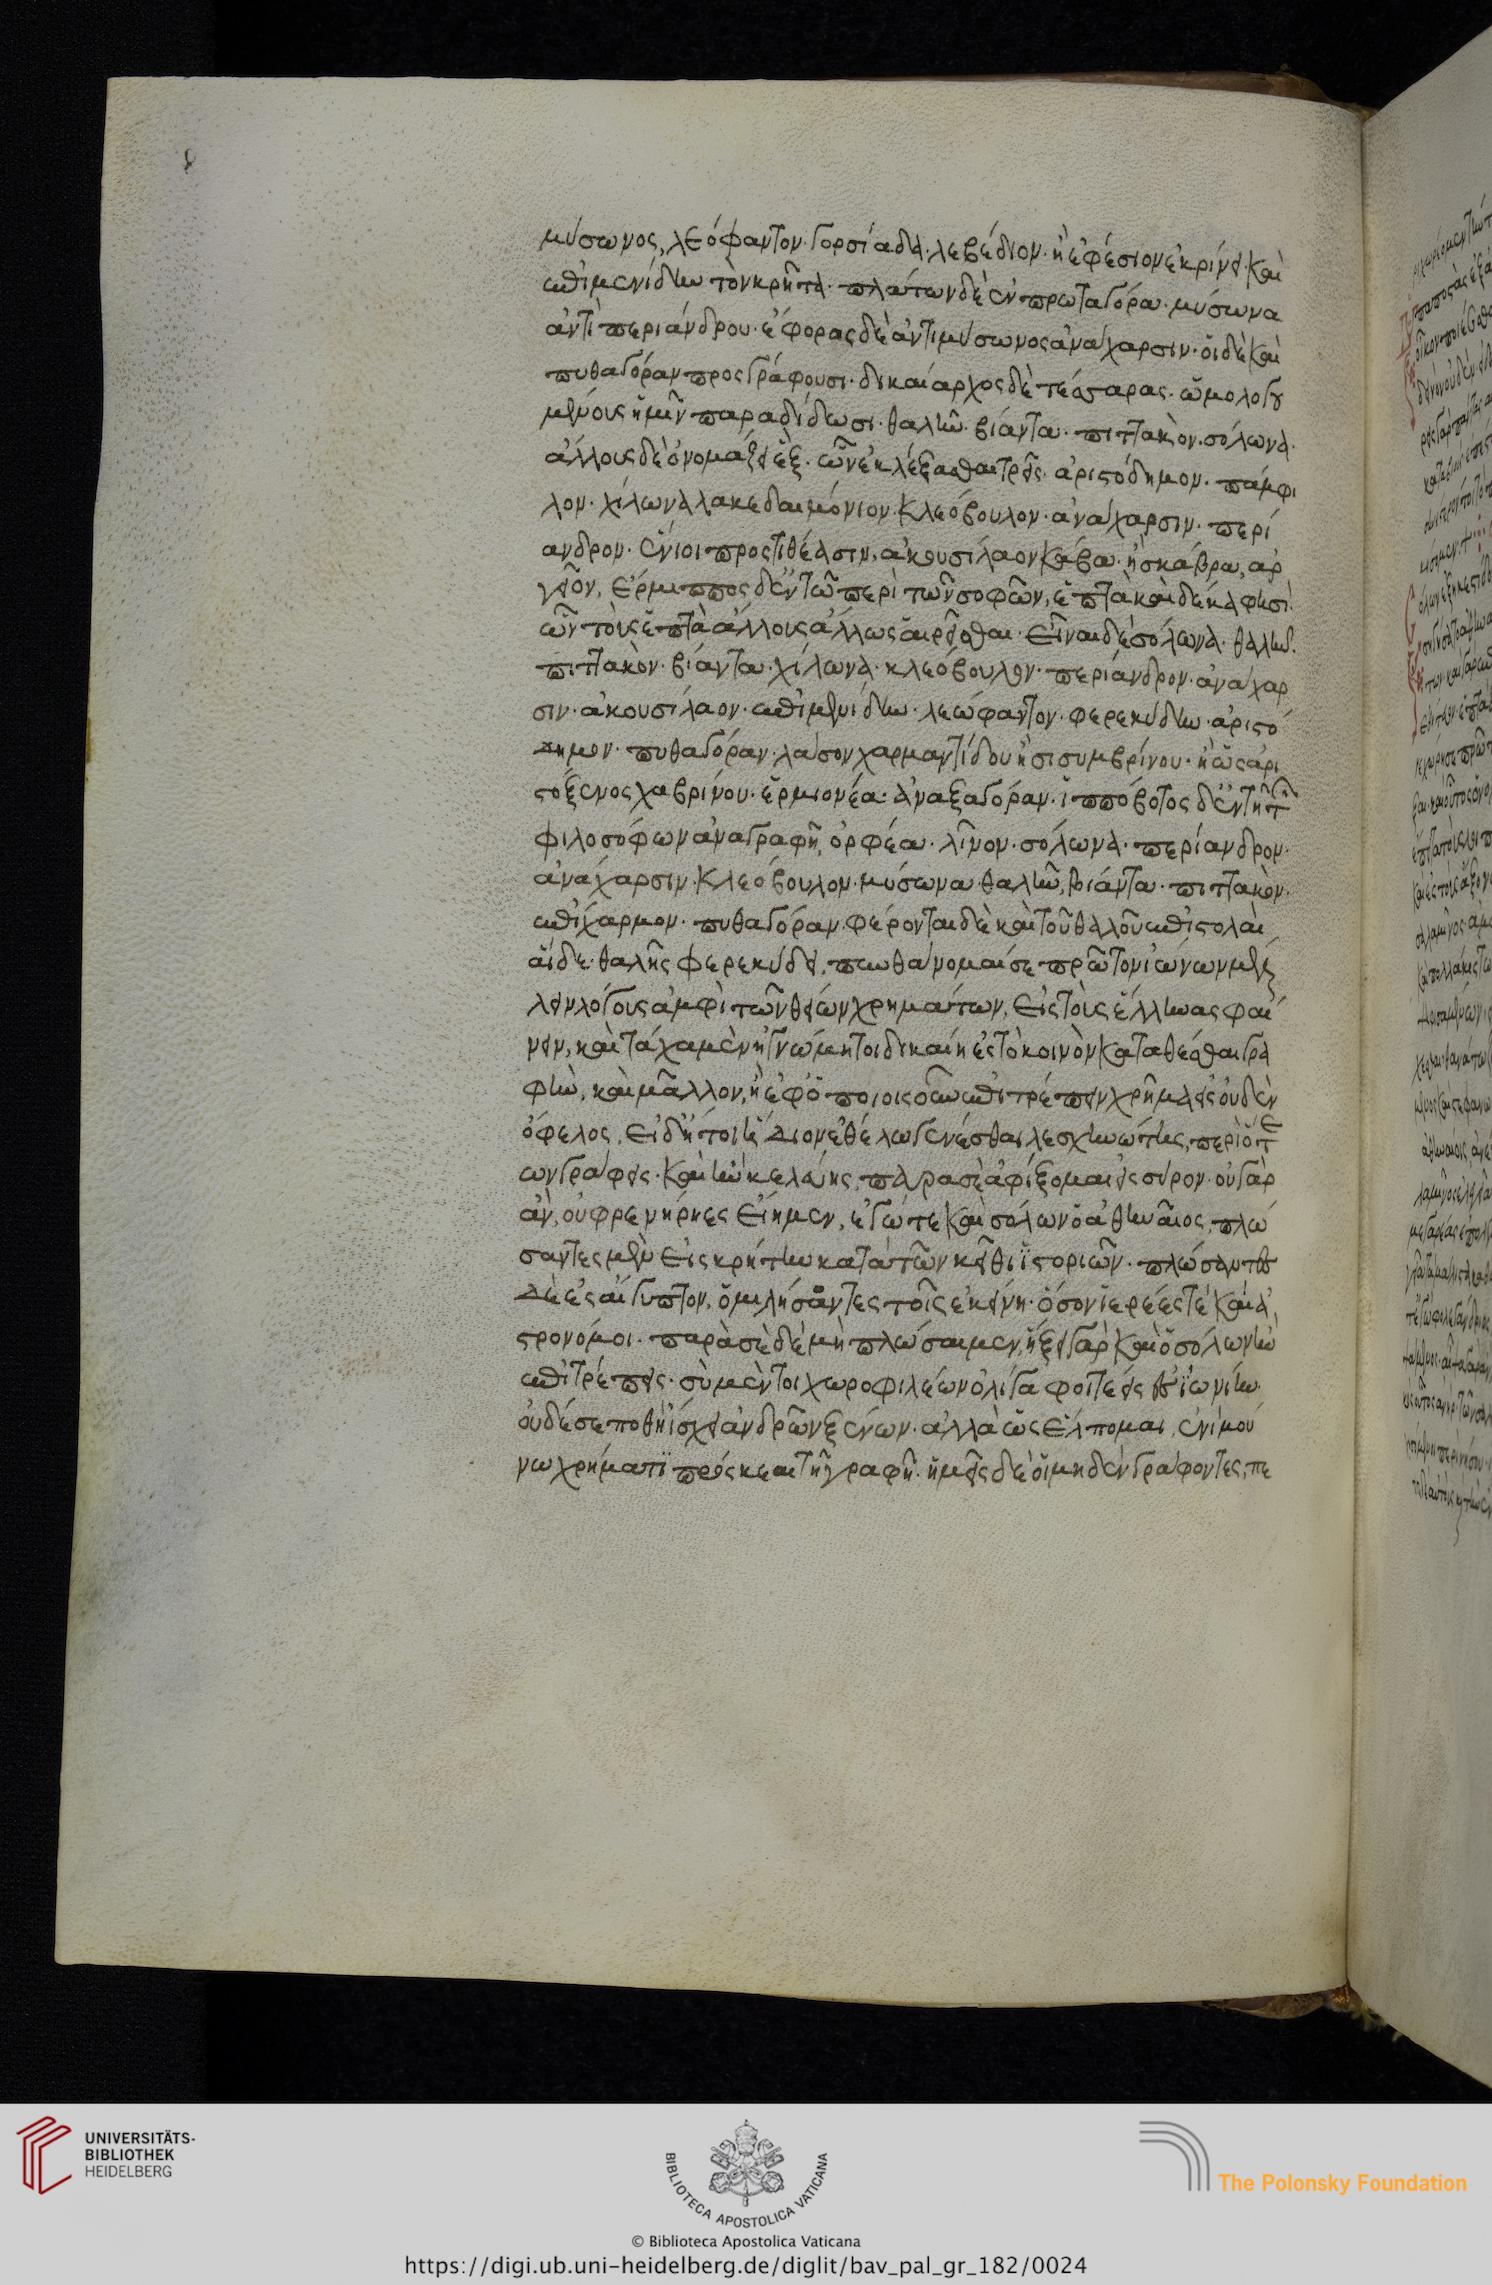 μύσωνος, λεόφαντον· γοργιάδα· λεβέδιον· ἢ ἐφέσιον ἐκρίνει· καὶ
ἐπιμενίδην τὸν κρῆτα· πλάτων δὲ ἐν πρωταγόρα· μύσωνα
ἀντὶ περιάνδρου· ἐφορας δὲ ἀντι μύσωνος ἀνάχαρσιν· οἱ δὲ καὶ
πυθαγόραν προσγράφουσι· δικαίαρχος δὲ τέσσαρας· ὡμολογου
μένους ἡμῖν παραδίδωσι· θαλῆν· βίαντα· πιττακὸν· σόλωνα·
ἄλλους δὲ ὀνομάζει ἓξ· ὧν ἐκλέξασθαι τρεῖς· ἀριστόδημον· πάμφι
λον· χίλωνα λακεδαιμόνιον· κλεόβουλον· ἀνάχαρσιν· περί
ανδρον· ἔνιοι προστιθέασιν, ἀκουσίλαον κάβα· ἢ σκάβρα, ἀρ
γεῖον, ἕρμιππος δ' ἐν τῶ περὶ τῶν σοφῶν, ἑπτὰ καὶ δέκα φησὶ·
ὧν τοὺς ἑπτὰ ἄλλους ἄλλως αἱρεῖσθαι· εἶναι δὲ σόλωνα· θαλῆν·
πιττακὸν· βίαντα· χίλωνα· κλεόβουλον· περίανδρον· ἀνάχαρ
σιν· ἀκουσίλαον· ἐπιμενίδην· λεώφαντον· φερεκύδην· ἀριστό
δημον· πυθαγόραν· λάσον χαρμαντίδου ἢ σισυμβρίνου· ἢ ὡς ἀρι
στόξενος χαβρίνου· ἑρμιονέα· ἀναξαγόραν· ἱππόβοτος δ' ἐν τῆ τῶν
φιλοσόφων ἀναγραφῆ, ὀρφέα· λῖνον· σόλωνα· περίανδρον·
ἀνάχαρσιν· κλεόβουλον· μύσωνα· θαλῆν, βίαντα· πιττακὸν·
ἐπίχαρμον· πυθαγόραν· φέρονται δὲ καὶ τοῦ θαλοῦ ἐπιστολαὶ
αἵδε· θαλῆς φερεκύδει, πυνθάνομαί σε πρῶτον ἰώνων μέλ
λειν λόγους ἀμφὶ τῶν θείων χρημάτων, εἰς τοὺς ἕλληνας φαί
νειν, καὶ τάχα μὲν ἡ γνώμη τοι δικαίη ἐς τὸ κοινὸν καταθέσθαι γρα
φὴν, καὶ μᾶλλον, ἢ ἐφ' ὁποίοις οὖν ἐπιτρέπειν χρῆμα εἰς οὐδὲν
ὄφελος, εἰ δή τοι ἥδιον ἐθέλω γενέσθαι λεσχηνώτης, περὶ ὅτε
ων γράφεις· καὶ ἢν κελεύης, παρὰ σὲ ἀφίξομαι εἰς σύρον· οὐ γὰρ
ἂν, οὐ φρενήρηες εἴημεν, ἐγώ τε καὶ σόλων ὁ ἀθηναῖος, πλώ
σαντες μὲν εἰς κρήτην κατὰ τῶν κεῖθι ἱστοριῶν· πλώσαντες
δὲ ἐς αἴγυπτον, ὁμιλήσοντες τοῖς ἐκείνη· ὅσον ἱερέες τέ καὶ ἀ
στρονόμοι· παρὰ σὲ δὲ μὴ πλώσαιμεν, ἥξει γὰρ καὶ ὁ σόλων ἢν
ἐπιτρέπεις· σὺ μέντοι χωροφιλέων ὀλίγα φοιτέεις ἐς ἰωνίην·
οὐδέ σε ποθὴ ἴσχει ἀνδρῶν ξείνων· ἀλλὰ ὡς ἔλπομαι, ἑνὶ μού
νω χρήματι πρόσκεαι τῆ γραφῆ· ἡμεῖς δὲ οἱ μηδὲν γράφοντες, πε
UNIVERSITÄTS-
BIBLIOTHEK
HEIDELBERG
BIBLIOTECA APOSTOLICA VATICANA
The Polonsky Foundation
© Biblioteca Apostolica Vaticana
https://digi.ub.uni-heidelberg.de/diglit/bav_pal_gr_182/0024